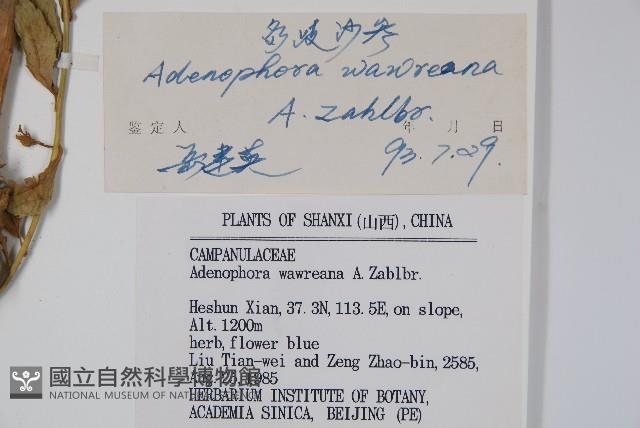 多岐沙参
Adenophora wawreana
A. Zahlbr.
鉴定人 年 月 日
93.7.29.
PLANTS OF SHANXI(山西), CHINA
CAMPANULACEAE
Adenophora wawreana A. Zablbr.
Heshun Xian, 37.3N, 113.5E, on slope,
Alt. 1200m
herb, flower blue
Liu Tian-wei and Zeng Zhao-bin, 2585,
1985
HERBARIUM INSTITUTE OF BOTANY,
ACADEMIA SINICA, BEIJING (PE)
國立自然科學博物館
NATIONAL MUSEUM OF NATURAL SCIENCE